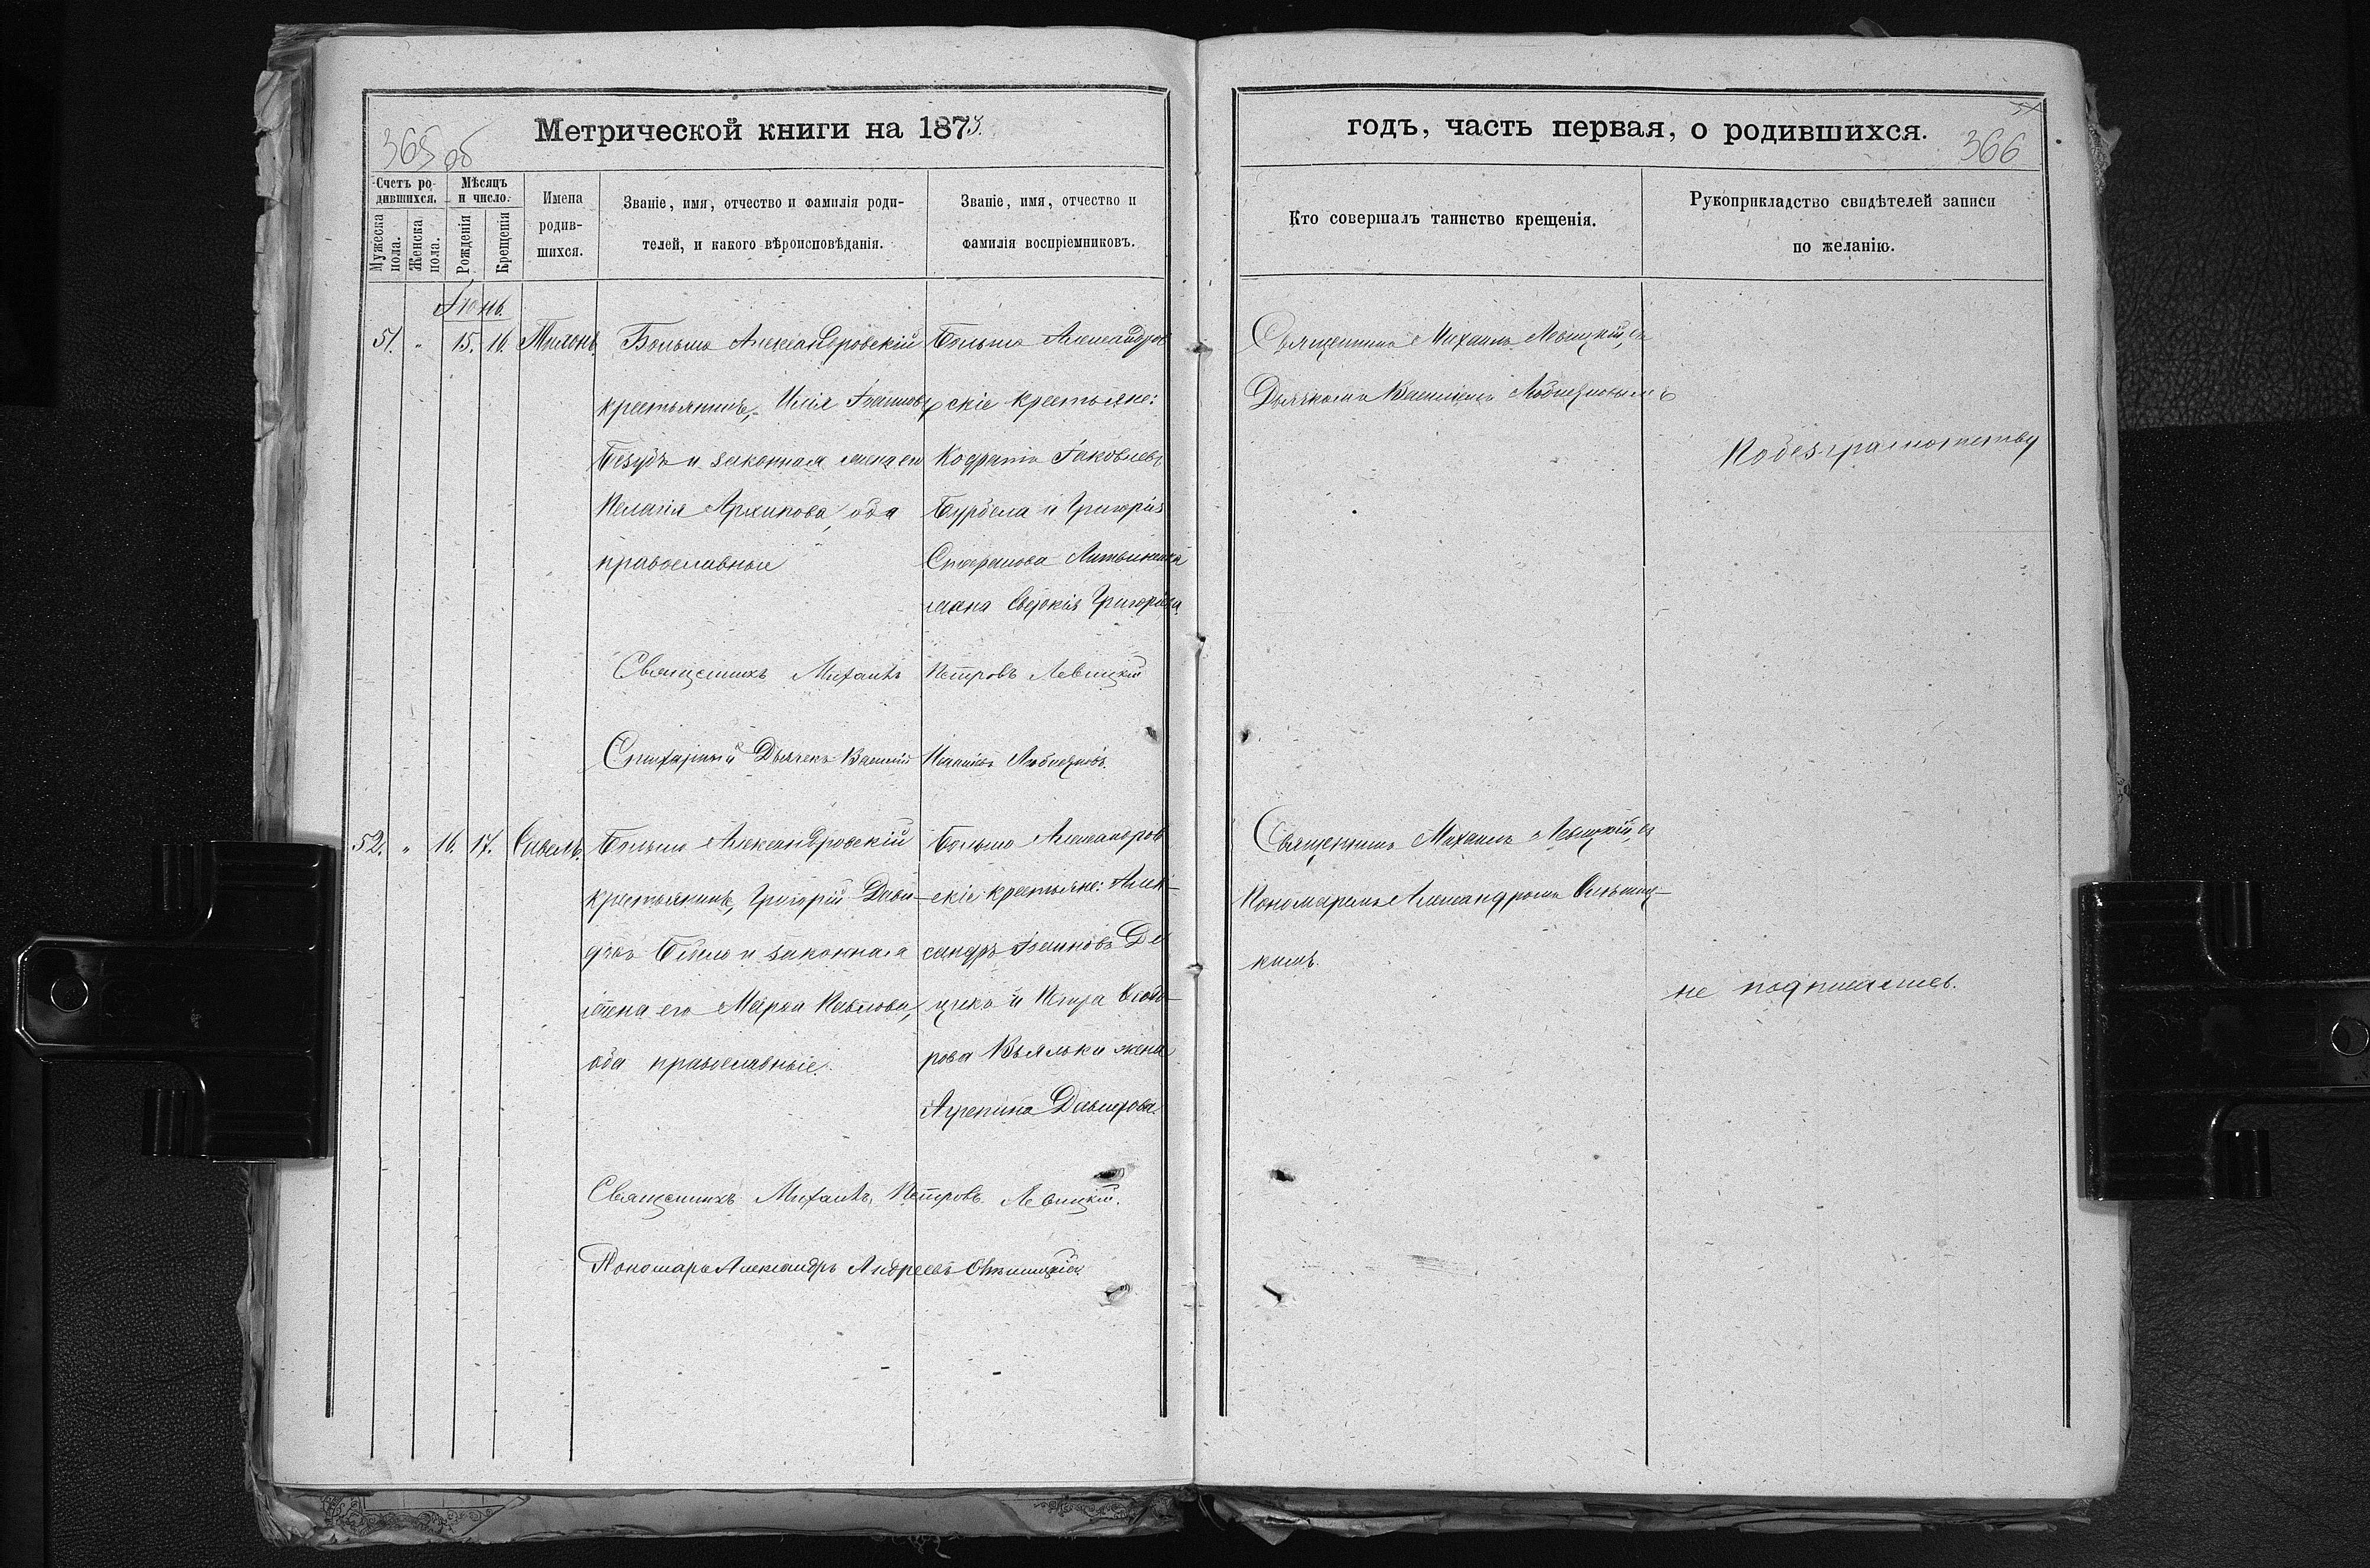 365 об
Метрической книги на 1873.
Счетъ ро-
дившихся.
Мужеска
пола.
Женска
пола.
Мѣсяцъ
и число.
Рожденія
Крещенія
Имена
родив-
шихся.
Званіе, имя, отчество и фамилія роди-
телей, и какого вѣроисповѣданія.
Званіе, имя, отчество и
фамилія воспріемниковъ.
Іюнь.
51. „ 15. 16. Тихонъ.
Больше Александровскій
крестьянинъ, Илія Іоанновъ
и законная жена его
Пелагія Архипова, оба
православные
Больше Александров
скіе крестьяне:
Кодратъ Іаковлевъ
Бурдела и Григорія
Стефанова Литвиненка
жена Евдокія Григоріева
Священникъ Михаилъ Петровъ Левицкій
Стихарный Дьячекъ Василій Любицкій
52. „ 16. 17. Савелъ.
Больше Александровскій
крестьянинъ, Григорій Дави-
довъ и законная
жена его Марѳа Павлова,
оба православные.
Больше Александров
скіе крестьяне: Алек-
сандръ Іоанновъ Де
и Петра Ѳеодо-
рова жена
Агрепина Давидова.
Священникъ Михаилъ Петровъ Левицкій.
Пономарь Александръ Андреевъ
годъ, часть первая, о родившихся.
366
Кто совершалъ таинство крещенія.
Рукоприкладство свидѣтелей записи
по желанію.
Священникъ Михаилъ Левицкій, съ
Дьячкомъ Василіемъ
По безграмотству
Священникъ Михаилъ Левицкій, съ
Пономаремъ Александромъ
кимъ.
не подписались.